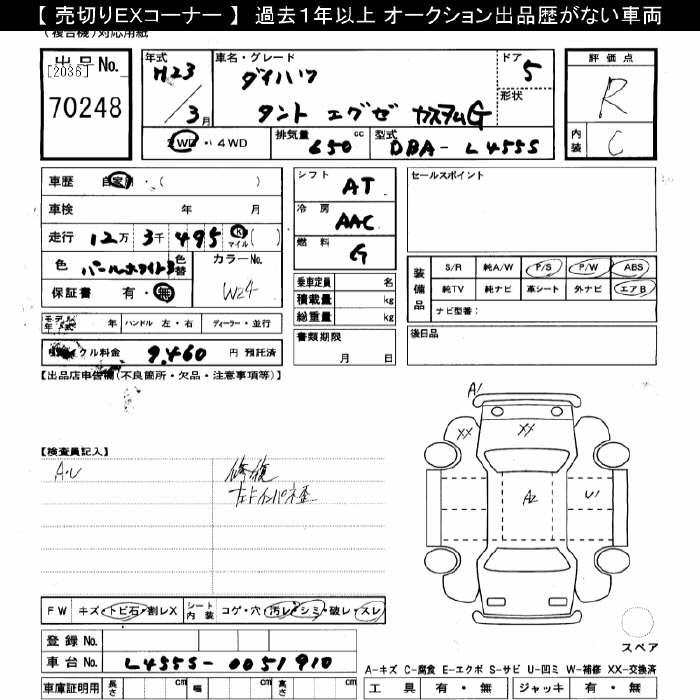 【 売切りEXコーナー 】 過去1年以上 オークション出品歴がない車両
(複合機)対応用紙
出品No.
[2036]
70248
年式 H23 / 3月
車名・グレード
ダイハツ
タント エグゼ カスタムG
ドア 5
形状
評価点
R
内装 C
2WD・4WD
排気量 650 cc
型式 DBA-L455S
車歴 自家用・( )
車検 年 月
走行 12万 3千 495 K マイル ( )
色 パールホワイト3 色替
カラーNo. W24
保証書 有・無
モデル年式 年 ハンドル 左・右 ディーラー・並行
リサイクル料金 9,460 円 預託済
シフト AT
冷房 AAC
燃料 G
乗車定員 名
積載量 kg
総重量 kg
書類期限
月 日
セールスポイント
装備品
S/R 純A/W P/S P/W ABS
純TV 純ナビ 革シート 外ナビ エアB
ナビ型番:
後日品
【出品店申告欄(不良箇所・欠品・注意事項等)】
【検査員記入】
A・U
修復
左トインパネ歪
A1
XX XX
A2
U1
スペア
FW キズ・トビ石・割レX
シート内装 コゲ・穴・汚レ・シミ・破レ・スレ
登録No.
車台No. L455S-0051910
車庫証明用 長さ cm 幅 cm 高さ cm
A-キズ C-腐食 E-エクボ S-サビ U-凹ミ W-補修 XX-交換済
工具 有・無 ジャッキ 有・無